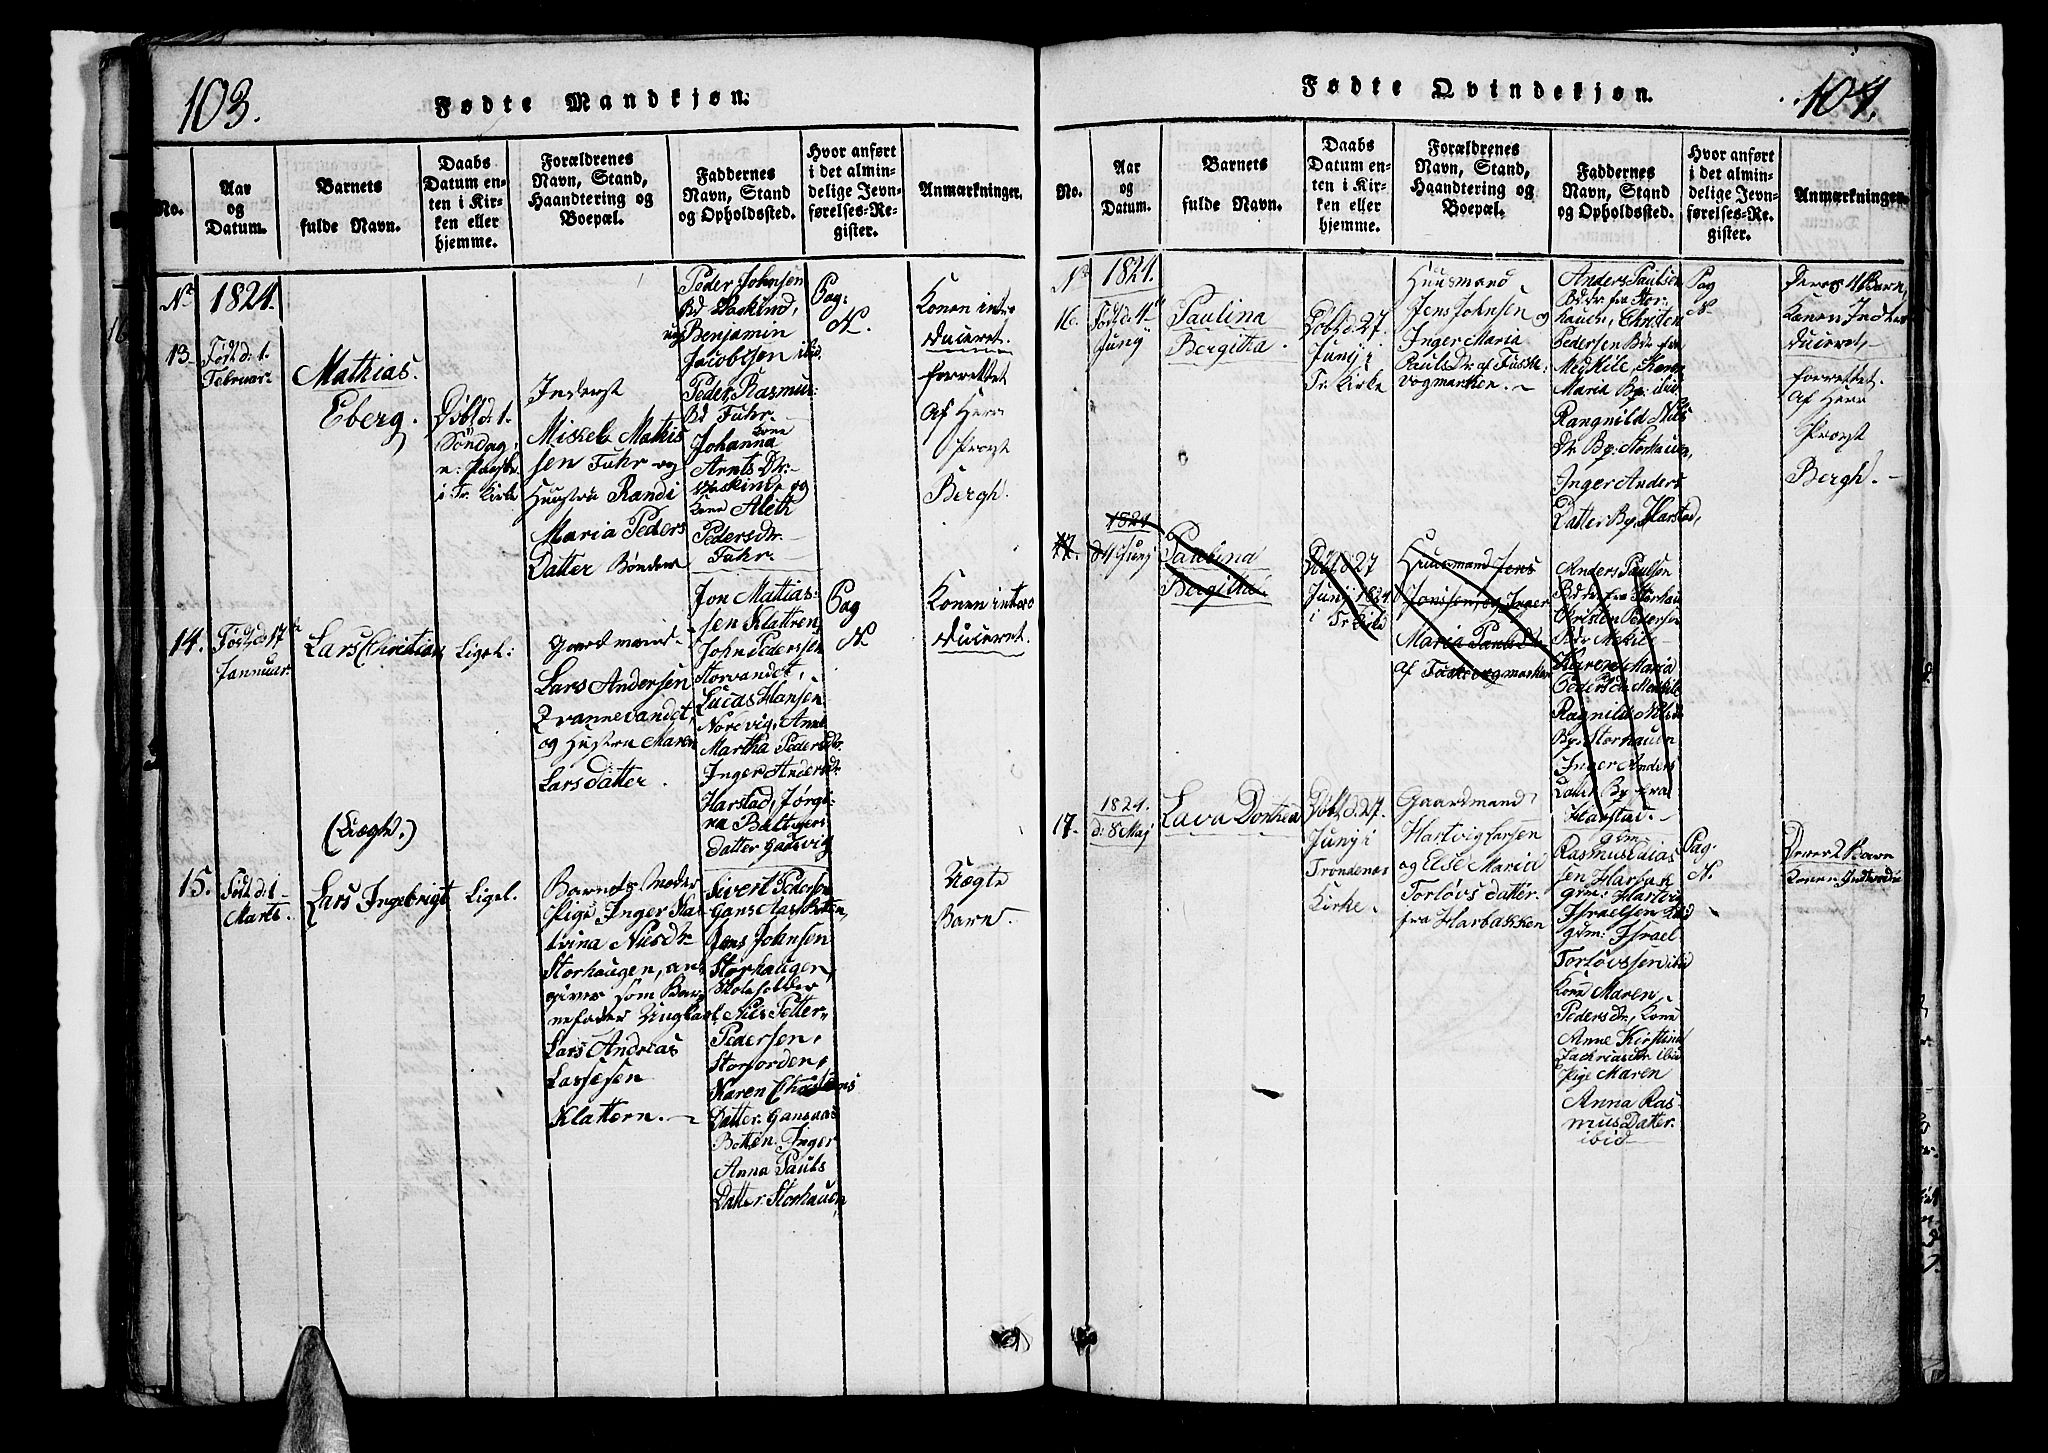 103.
Fødte Mandkjøn.
No.
Aar
og
Datum.
Barnets
fulde Navn.
Daabs
Datum en-
ten i Kir-
ken eller
hjemme.
Forældrenes
Navn, Stand,
Haandtering og
Boepæl.
Faddernes
Navn, Stand
og Opholdssted.
Hvor anført
i det almin-
delige Jevn-
førelses-Re-
gister.
Anmærkninger.
No
1824.
13
Født d: 1.
Februar.
Mathias
Eberg.
Døbt d: 1.
Søndag
i Tr. Kirke
Inderst
Missel Mathis
sen Fuhr og
Hustru Randi
Maria Peders
Datter Bønder
Peder Johnsen
Benjamin
Jacobssen ibid.
Peder Rasmus:
Bd Fuhr.
Johanna
Arnts Dr:
og
Kone Aleth
Pedersdr.
Fuhr.
Pag:
N.
Konen intro
duceret.
forrettet
af Herr
Provst
Bergh.
14.
Født d: 17
Januar.
Lars Christian
Ligel:
Gaardmand
Lars Andersen
Trannevandet,
og Hustru Maren
Lars datter.
Jon Mathias-
sen Klattren,
John Pedersen
Storvandet,
Lucas Hansen
Norevig, Anne
Martha Pedersdr.
Inger Andersdr
Harstad, Jørgi-
na Baltzers
datter Gansvig
Pag
N.
Konen intro
duceret.
(Uægte.)
15.
Født d: 1
Marts.
Lars Ingebrigt
Ligel.
Barnets Moder
Pige Inger Ka-
trina Nilsdr
Storhaugen, an-
giver som Bar-
nefader Ungkarl
Lars Andreas
Lassesen
Klattern.
Sivert Pedersen
Gansaas Botten,
Jens Johnsen
Storhaugen,
Skoleholder
Nils Petter
Pedersen,
Storjorden,
Karen Christens
Datter. Gansaas
Botten. Inger
Anna Pauls
Datter: Storhauen
Uægte
Barn.
Fødte Qvindekjøn.
104.
No.
Aar
og
Datum.
Barnets
fulde Navn.
Daabs
Datum en-
ten i Kir-
ken eller
hjemme.
Forældrenes
Navn, Stand,
Haandtering og
Boepæl.
Faddernes
Navn, Stand
og Opholdssted.
Hvor anført
i det almin-
delige Jevn-
førelses-Re-
gister.
Anmærkninger.
No
1824.
16.
Født d: 4
Junÿ
Paulina
Bergitha.
Døbt d: 27
Junÿ i
Tr. Kirke
Huusmand
Jens Johnsen og
Inger Maria
Pauls Dr. af Fuske-
vogmarken.
Anders Paulsen
Bdr. fra Stor-
hauen, Christen
Pedersen Bdr fra
Medkile, Karen
Maria Pg. ibid.
Rangnild Nils
Dr. Pg. Storhauen,
Inger Anders
Datter Pg. Harstad,
Pag
N.
Deres 4 Barn,
Konen Intro
duceret,
forrettet.
af Herr
Provst
Bergh.
17.
1824
d 4 Junÿ
Paulina
Bergitha.
Døbt d: 27
Junÿ 1824
i Tr Kirke
Huusmand Jens
Jonssen og Inger
Maria Pauls Dr
Anders Paulsen
Bdr fra Storhau
Christen Pedersen
Bdr Mekile
Karen Maria
Pedersdr. Mekile
Ragnild Nilsdr
Pg. Storhauen
Inger Anders
Datter Pg fra
Harstad.
17
1824.
d: 8 Maj
Lava Dorthea
Døbt d. 27.
Junÿ i
Trondenæs
Kirke.
Gaardmand
Hartvig Larsen
og Else Maria
Torlovs datter.
fra Harbakken
gdm
Rasmus Eaias
sen Harbak
gdm: Hartvig
Israelsen ibid
gdm: Israel
Torlovssen ibid
Kone Maren
Pedersdr, Kone
Anne Kirstina
Zachriasdr ibid
Pige Maren
Anna Ras-
mus Datter.
ibid
Pag.
N.
Deres 2 Barn
Konen Introdu